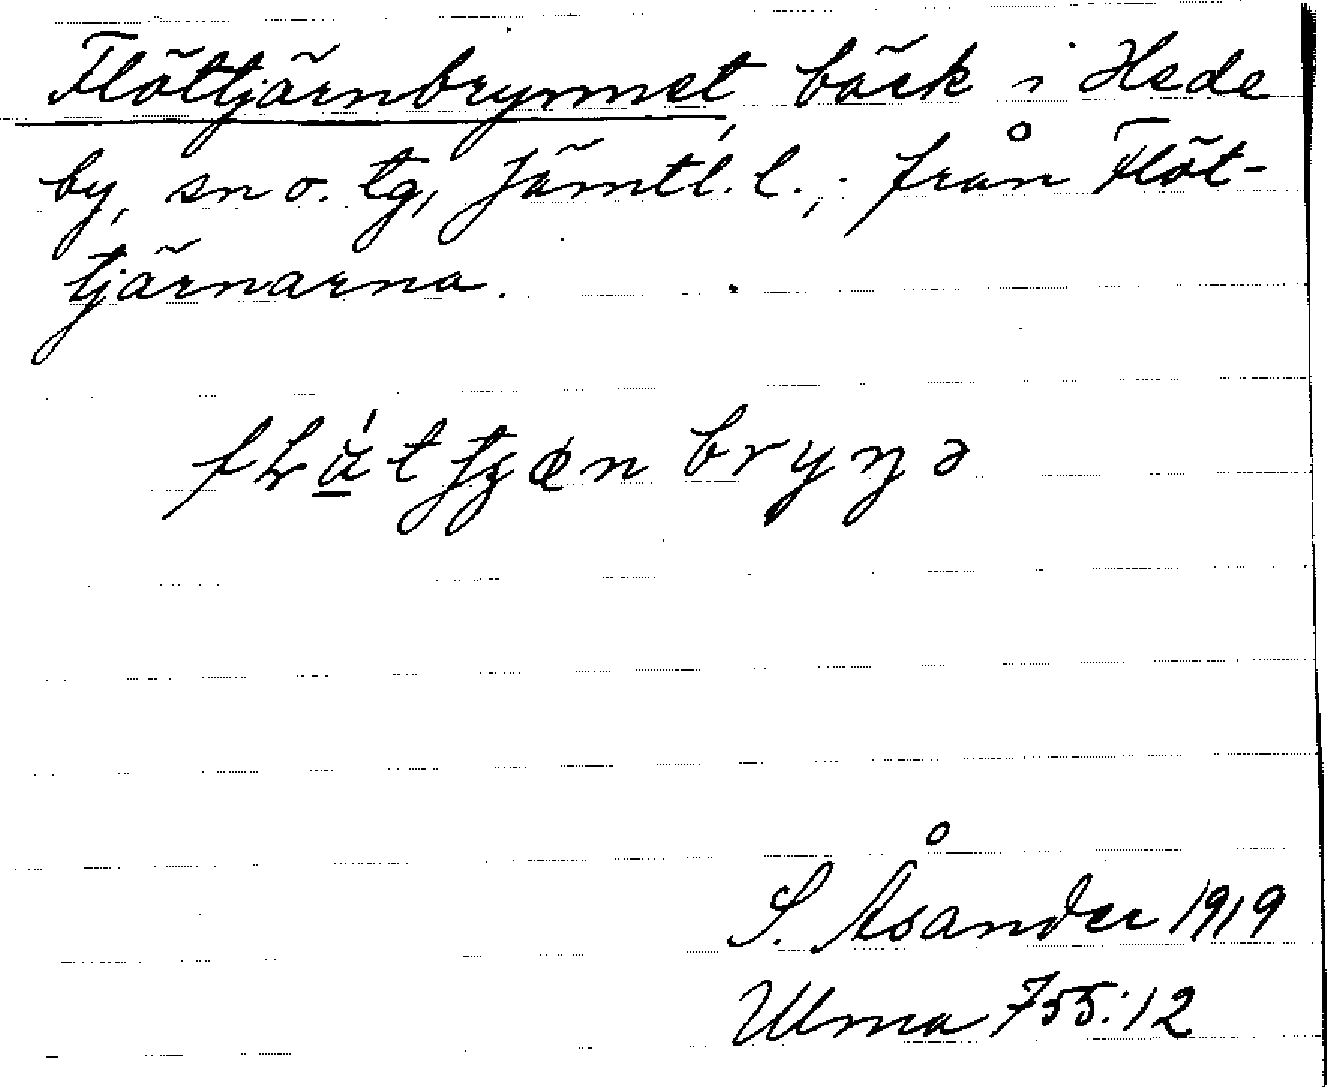 Flöttjärnbrynnet bäck i Hede
by, sn o. tg, Jämtl. l., från Flöt-
tjärnarna.
S. Åsander 1919
Ulma 755:12